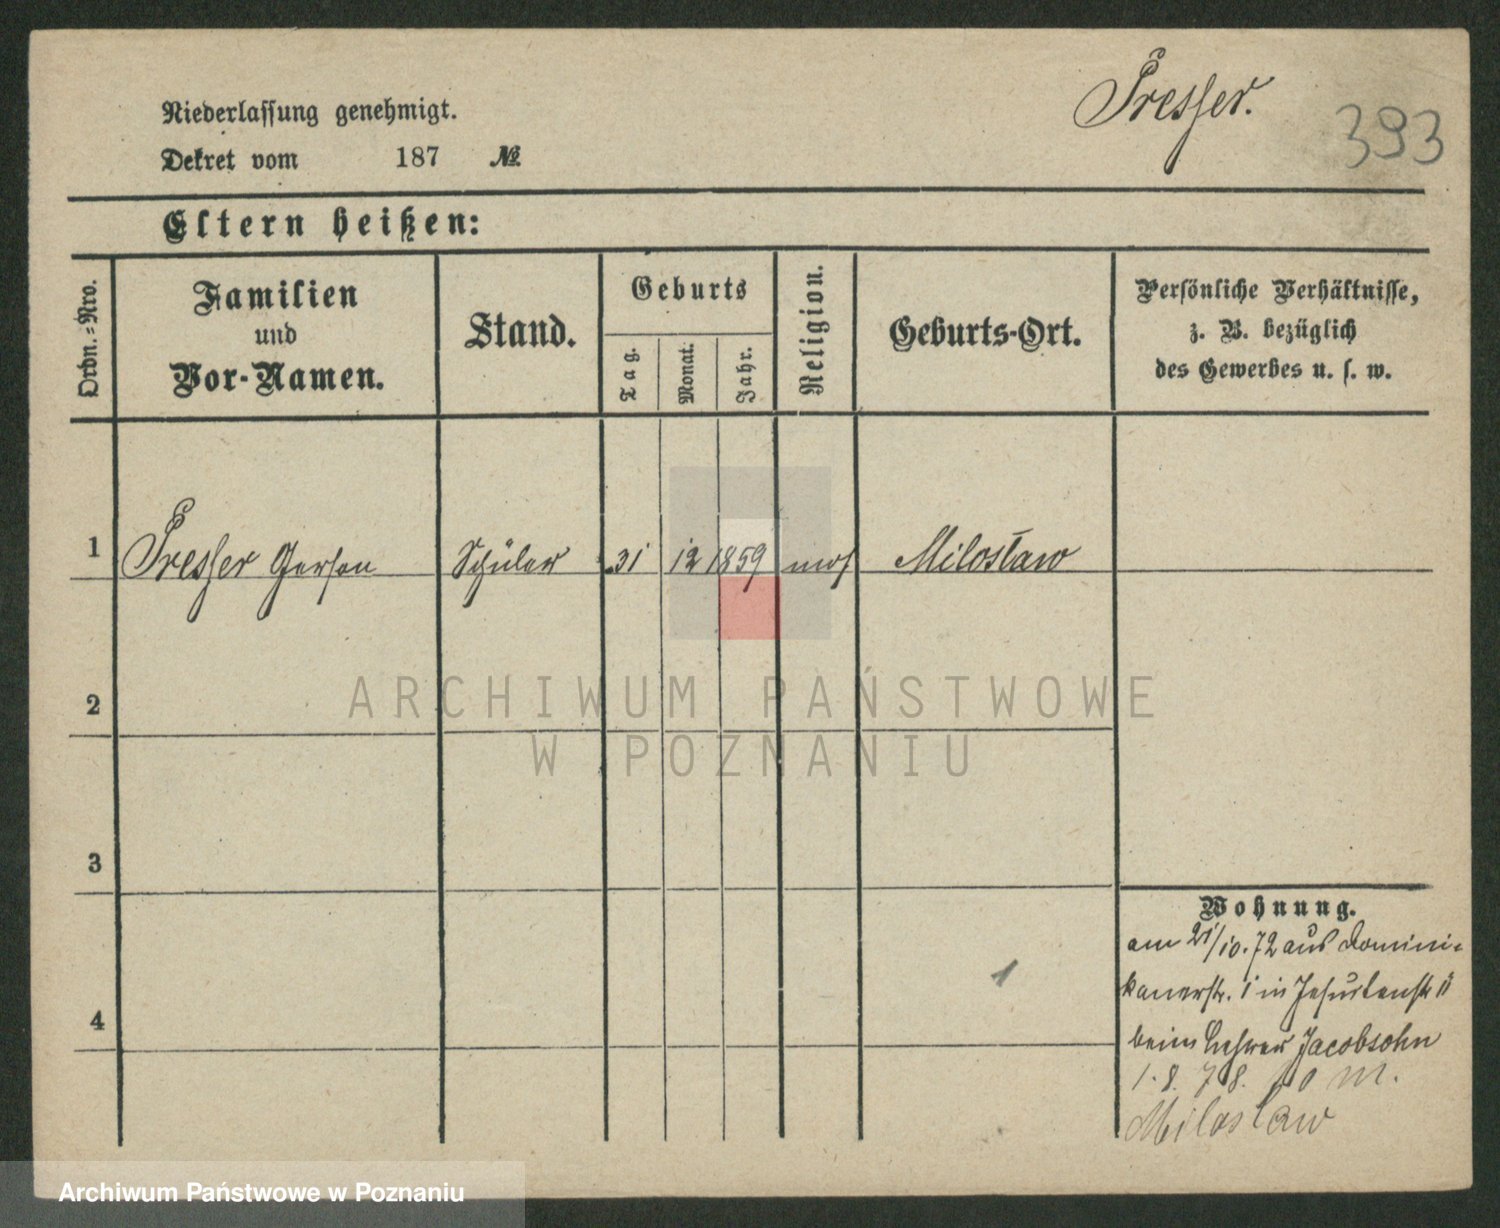 Presser.
393
Niederlassung genehmigt.
Dekret vom 187 №
Eltern heißen:
Ordn.=Nro.
Familien
und
Vor-Namen.
Stand.
Geburts
Tag.
Monat.
Jahr.
Religion.
Geburts-Ort.
Persönliche Verhältnisse,
z. B. bezüglich
des Gewerbes u. s. w.
1 Presser Gerson Schüler 31 12 1859 mos Miloslaw
2
3
4
Wohnung.
am 21/10.72 aus Domini-
kanerstr. 1 in Jesuitenstr 11
beim Lehrer Jacobsohn
1. 8. 78.
Miloslaw
1
ARCHIWUM PAŃSTWOWE
W POZNANIU
Archiwum Państwowe w Poznaniu